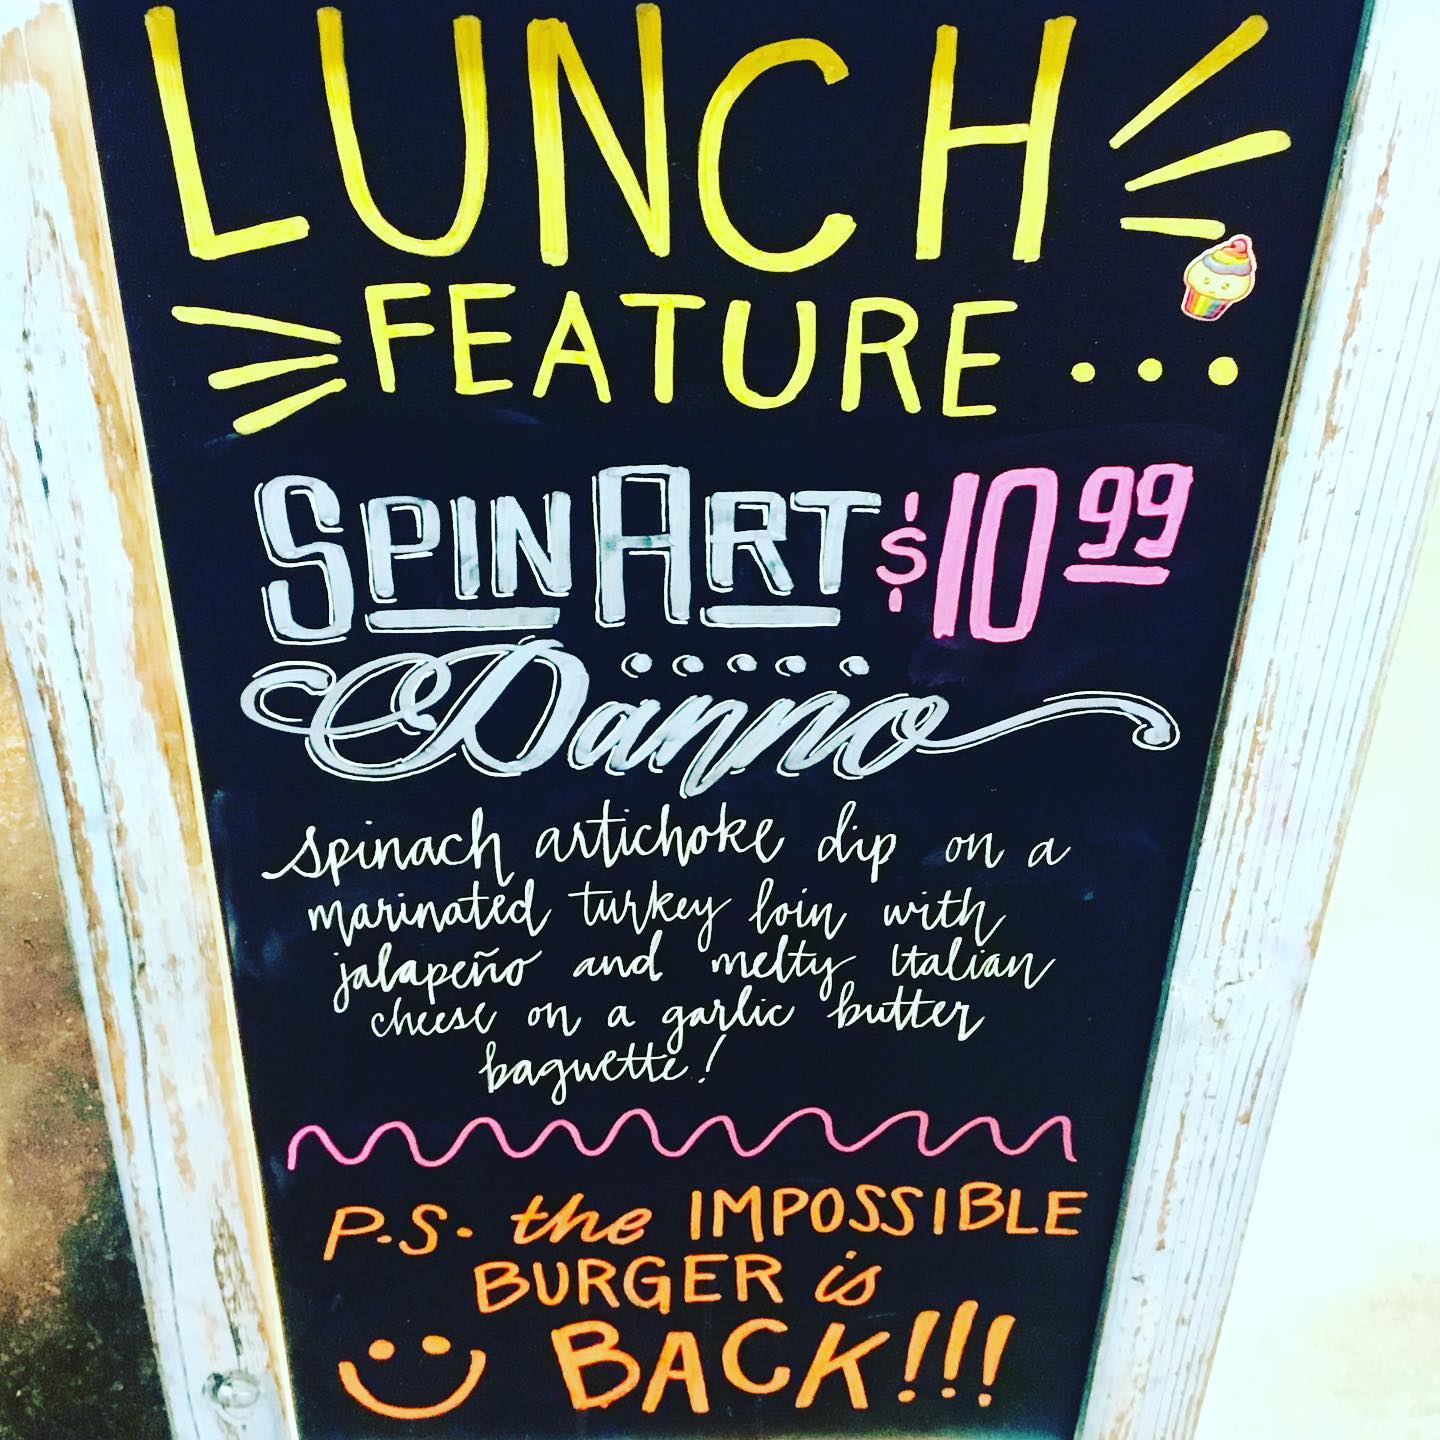 LUNCH
FEATURE...
SPINART $10.99
Danno
spinach artichoke dip on a
marinated turkey loin with
jalapeño and melty Italian
cheese on a garlic butter
baguette!
P.S. the IMPOSSIBLE
BURGER is
BACK!!!